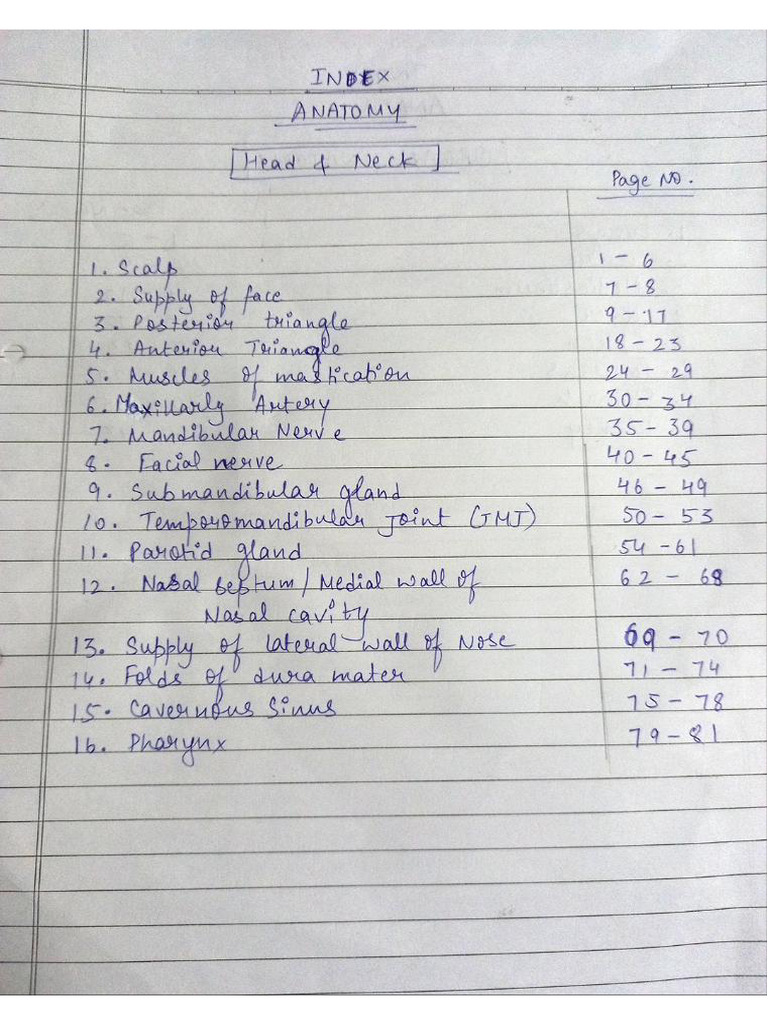 INDEX
ANATOMY
[Head & Neck]
Page No.
1. Scalp 1 - 6
2. Supply of face 7 - 8
3. Posterior triangle 9 - 17
4. Anterior Triangle 18 - 23
5. Muscles of mastication 24 - 29
6. Maxillarly Artery 30 - 34
7. Mandibular Nerve 35 - 39
8. Facial nerve 40 - 45
9. Submandibular gland 46 - 49
10. Temporomandibular Joint (TMJ) 50 - 53
11. Parotid gland 54 - 61
12. Nasal septum / Medial wall of 62 - 68
Nasal cavity
13. Supply of lateral wall of Nose 69 - 70
14. Folds of dura mater 71 - 74
15. Cavernous Sinus 75 - 78
16. Pharynx 79 - 81